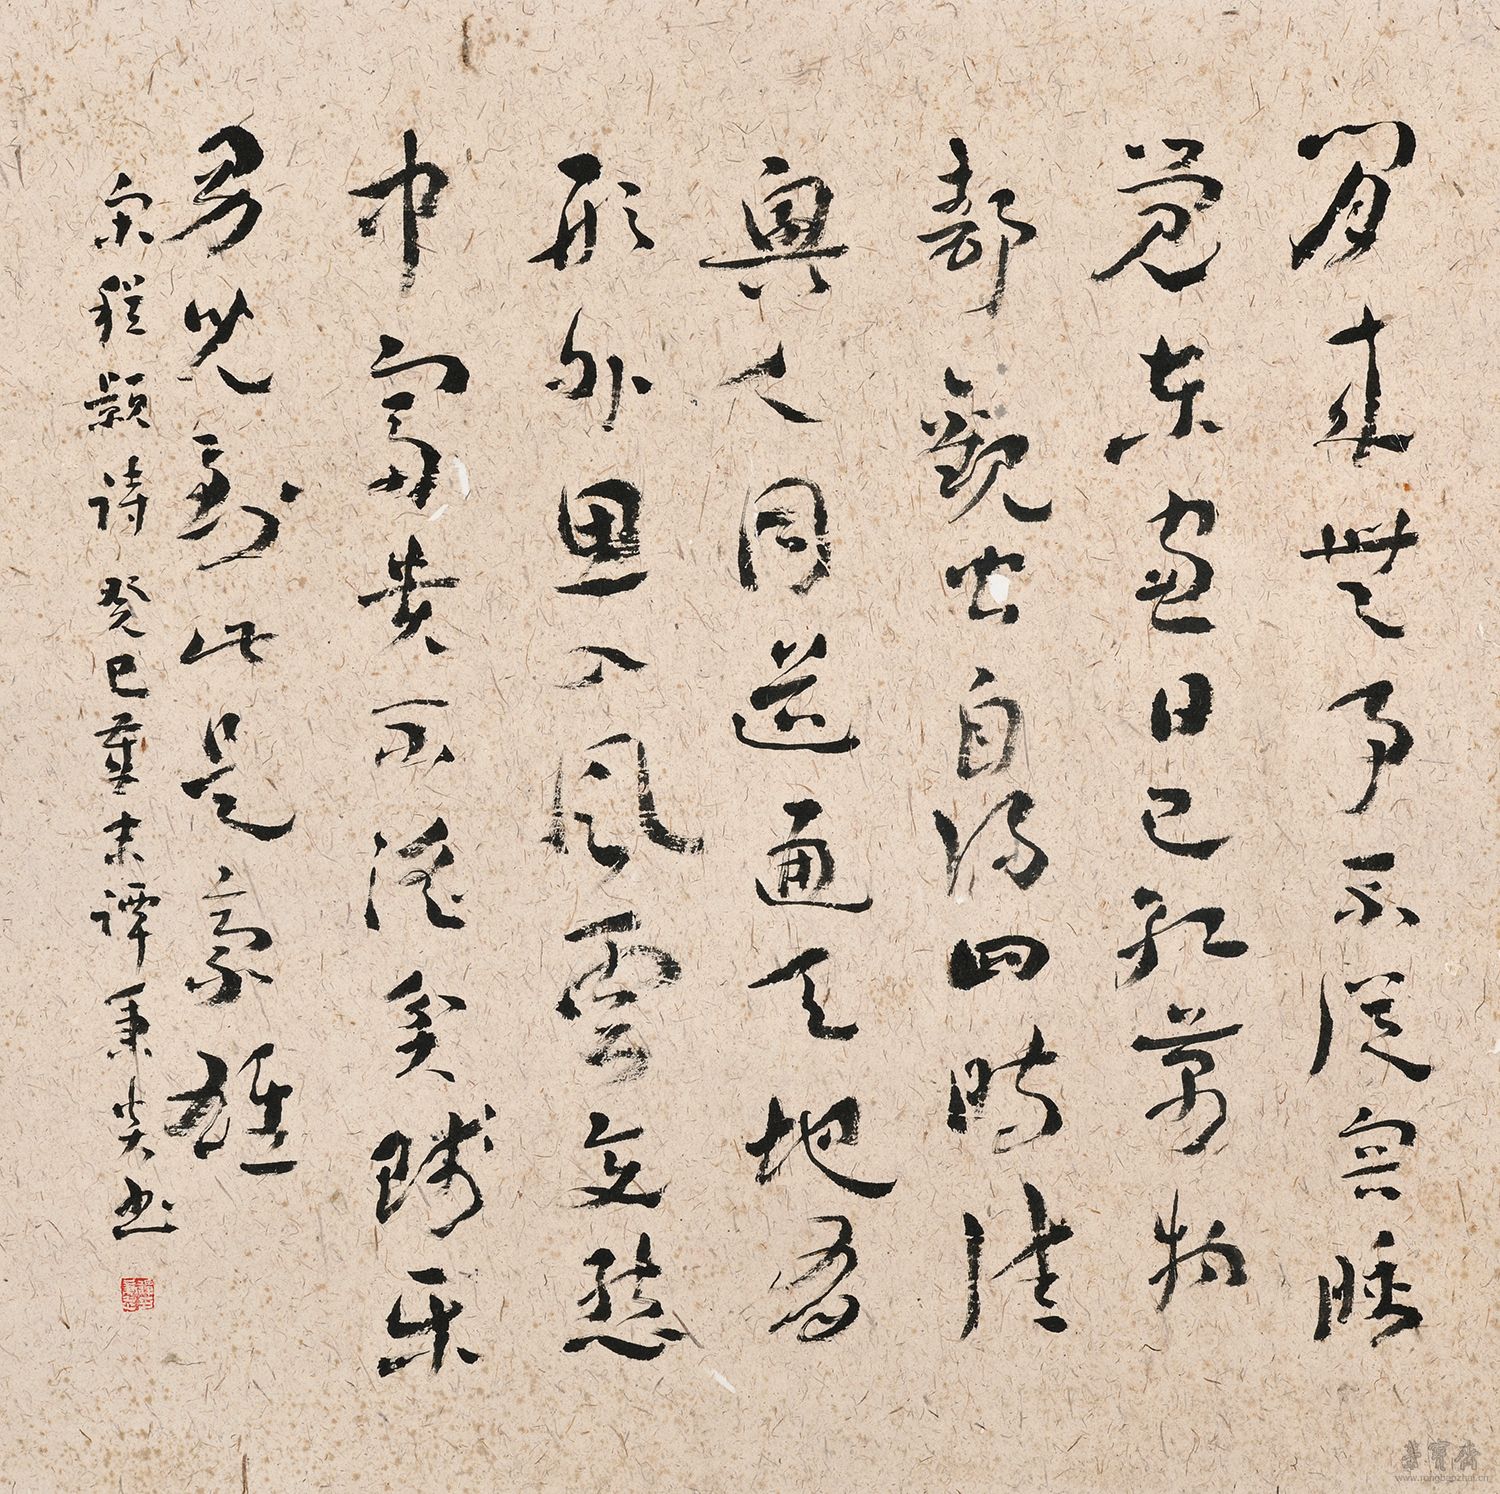 閒来無事不從容睡
觉東窗日已紅萬物
静觀皆自得四時佳
興人同道通天地有
形外思入風雲变態
中富貴不淫貧賤乐
男兒到此是豪雄
宋程颢詩 癸巳末譚秉炎书
榮寶齋
www.rongbaozhai.cn